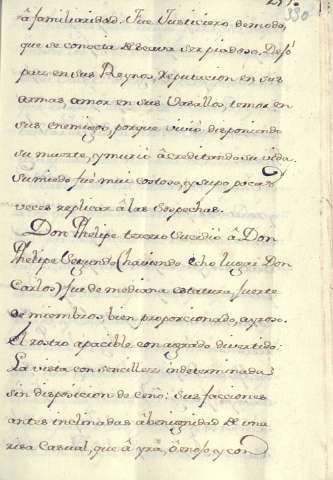 330
â familiaridad. Fue Justiciero de modo,
que se conocía de veura ser piadoso. Dejó
paz en sus Reynos, Reputacion en sus
armas, amor en sus Vasallos, temor en
sus enemigos, porque vivió disponiendo
su muerte, y murió âcreditando su vida.
Su miedo fué mui costoso, y supo pocas
veces replicar â las Sospechas.
Don Phelipe tercero Sucedió â Don
Phelipe Segundo (haciendo lugar Don
Carlos) fue de mediana estatura, fuerte
de miembros, bien proporcionado, ayroso.
El rostro apacible con agrado divertido:
La vista con sencillez indeterminada
sin disposicion de Ceño: Sus facciones
antes inclinadas â benignidad de una
risa Casual, que â yrâ, ô enojo, y con